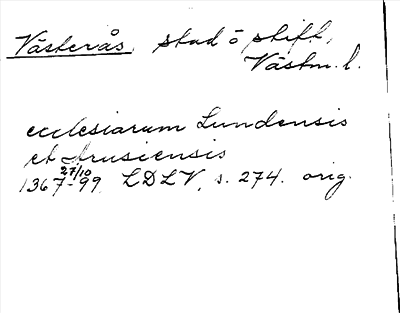 Västerås, stad o stift,
Västm. l.
ecclesiarum Lundensis
et Arusiensis
27/10
1367-99 LDLV, s. 274. orig.